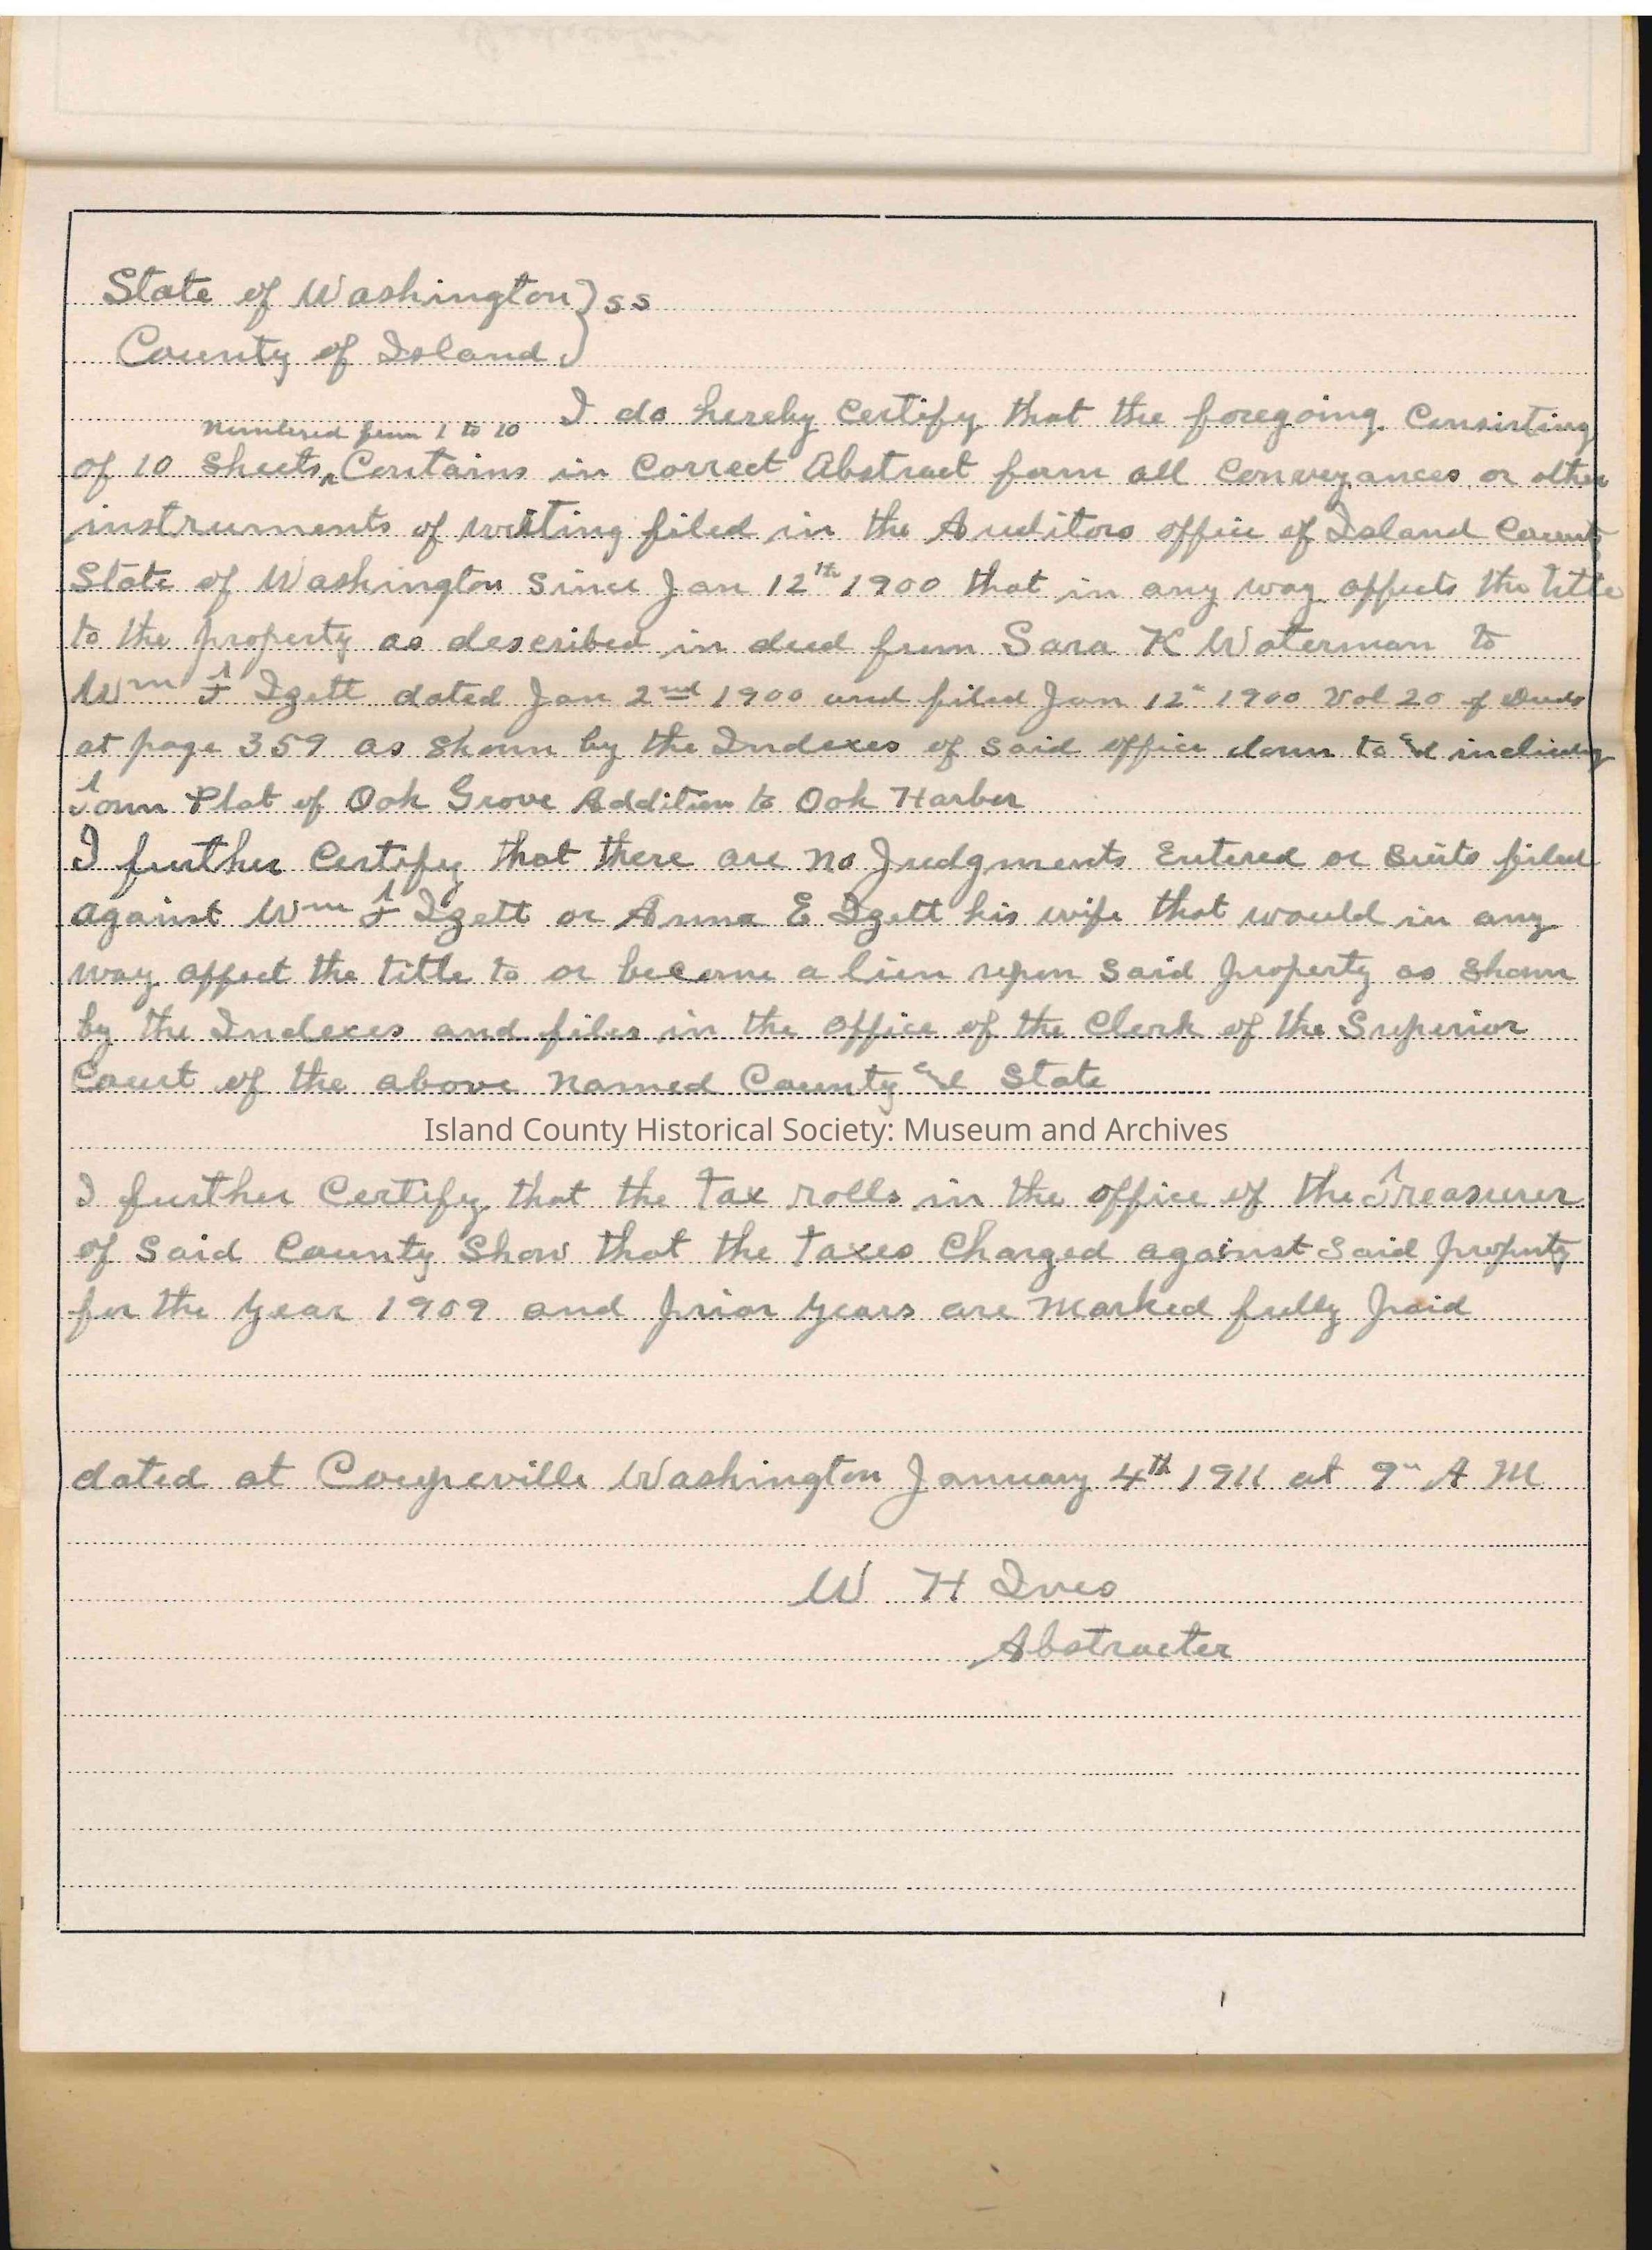 State of Washington } ss
County of Island }
I do hereby Certify that the foregoing Consisting
Numbered from 1 to 10
of 10 Sheets ^ Contains in Correct Abstract form all Conveyances or other
instruments of writing filed in the Auditors office of Island County
State of Washington Since Jan 12th 1900 that in any way affects the title
to the property as described in deed from Sara K Waterman to
Wm F Izett dated Jan 2nd 1900 and filed Jan 12" 1900 Vol 20 of Deeds
at page 359 as Shown by the Indexes of Said office down to & including
Town Plat of Oak Grove Addition to Oak Harbor
I further Certify that there are no Judgments Entered or Suits filed
against Wm F Izett or Anna E Izett his wife that would in any
way affect the title to or become a lien upon Said property as Shown
by the Indexes and files in the office of the Clerk of the Superior
Court of the above Named County & State
Island County Historical Society: Museum and Archives
I further Certify that the Tax rolls in the office of the Treasurer
of Said County Show that the Taxes Charged against Said property
for the year 1909 and prior years are Marked fully paid
dated at Coupeville Washington January 4th 1911 at 9" A M
W H Ives
Abstracter